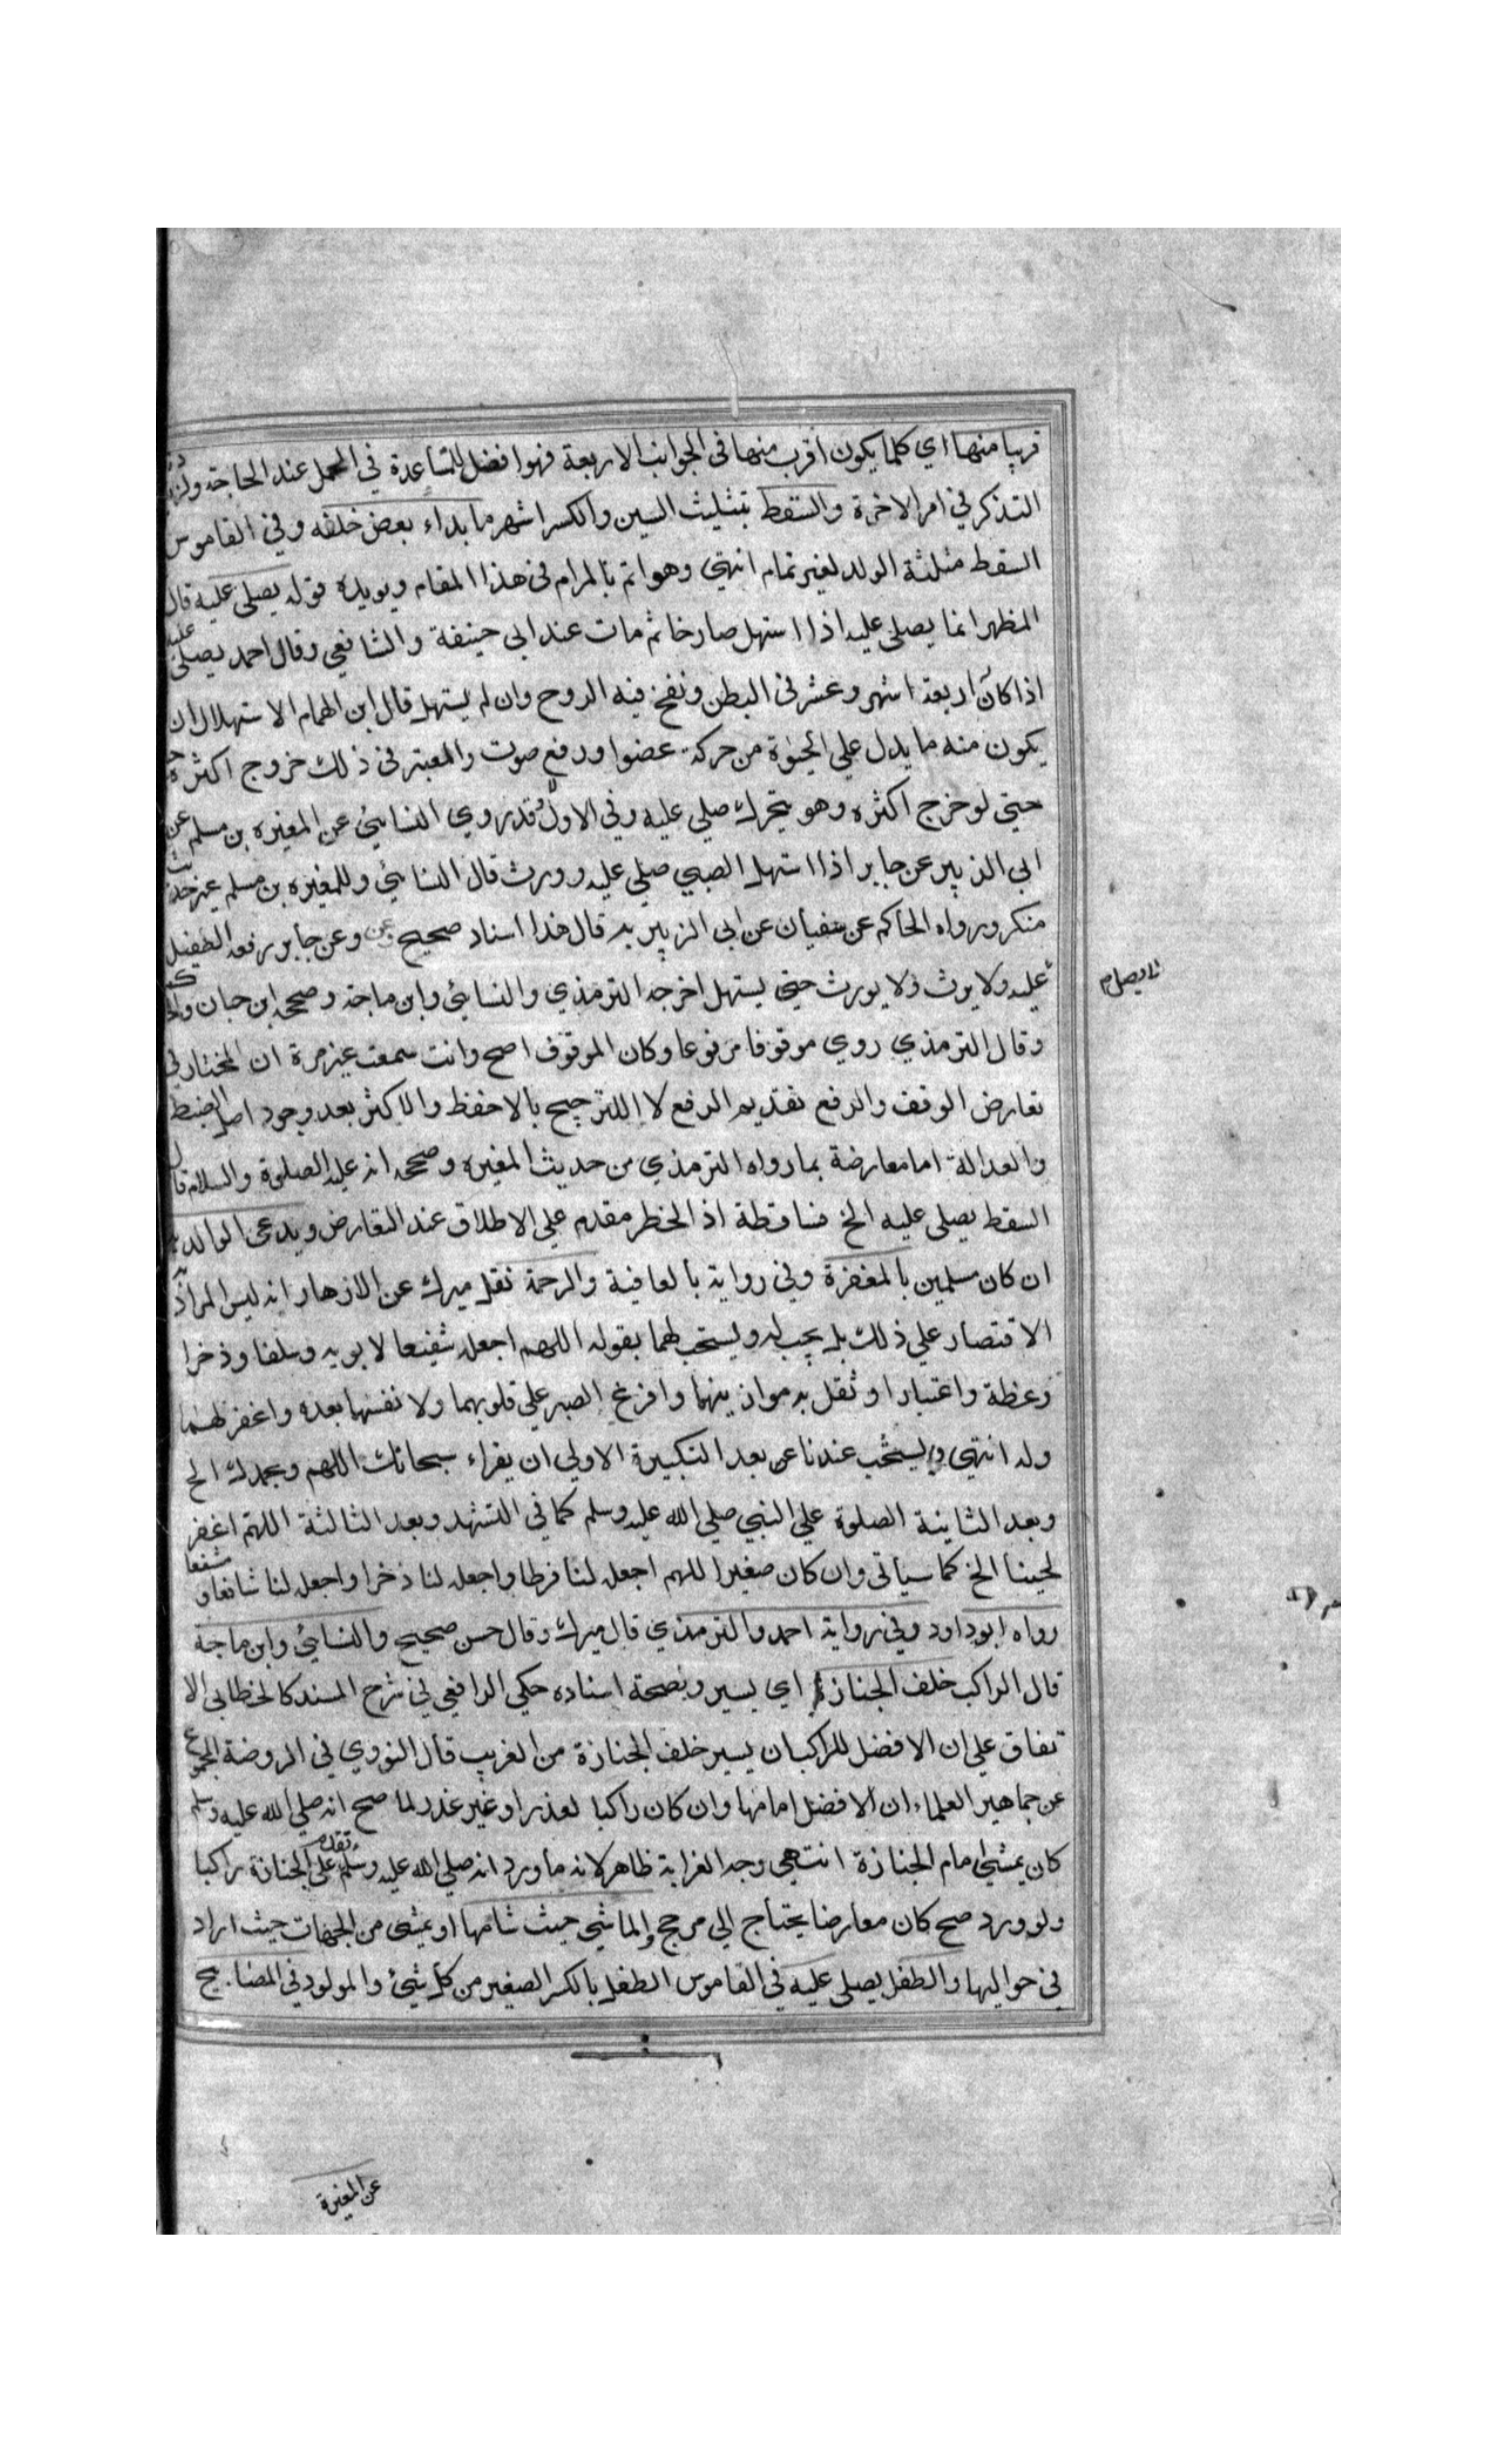 قريبا منها اي كلما يكون اقرب منها في الجوانب الاربعة فهو افضل للمساعدة في الحمل عند الحاجة
التذكر في امر الاخرة والسقط بتثليث السين والكسر اشهر ما بداء بعض خلقه وفي القاموس
السقط مثلثة الولد لغير تمام انتهي وهو اتم بالمرام في هذا المقام ويويده قوله يصلي عليه قال
المظهر انما يصلي عليه اذا استهل صارخا ثم مات عند ابي حنيفة والشافعي وقال احمد يصلي عليه
اذا كان اربعة اشهر وعشر في البطن ونفخ فيه الروح وان لم يستهل قال ابن الهمام الاستهلال ان
يكون منه ما يدل علي الحيوة من حركة عضو او رفع صوت والمعتبر في ذلك خروج اكثره
حتي لو خرج اكثره وهو يتحرك صلي عليه وفي الاول فقد روي النسائي عن المغيره بن مسلم عن
ابي الزبير عن جابر اذا استهل الصبي صلي عليه وورث قال النسائي وللمغيره بن مسلم غير حديث
منكر ورواه الحاكم عن سفيان عن ابي الزبير به قال هذا اسناد صحيح وعن جابر رفعه الطفل
لا يصلي
عليه ولا يرث ولا يورث حتي يستهل اخرجه الترمذي والنسائي وابن ماجة وصححه ابن حبان
وقال الترمذي روي موقوفا مرفوعا وكان الموقوف اصح وانت سمعت غير مرة ان المختار في
تعارض الوقف والرفع تقديم الرفع لا الترجيح بالاحفظ والاكثر بعد وجود اصل الضبط
والعدالة اما معارضة بما رواه الترمذي من حديث المغيره وصححه انه عليه الصلوة والسلام قال
السقط يصلي عليه الخ فساقطة اذ الحظر مقدم علي الاطلاق عند التعارض ويدعي لوالديه
ان كان مسلمين بالمغفرة وفي رواية بالعافية والرحمة نقل ميرك عن الازهار انه ليس المراد
الاقتصار علي ذلك بل يجب له ويستحب لهما بقوله اللهم اجعله شفيعا لابويه وسلفا وذخرا
وعظة واعتبارا وثقل به موازينهما وافرغ الصبر علي قلوبهما ولا تفتنهما بعده واغفر لهما
وله انتهي ويستحب عندنا بعد التكبيرة الاولي ان يقراء سبحانك اللهم وبحمدك الخ
وبعد الثانية الصلوة علي النبي صلي الله عليه وسلم كما في التشهد وبعد الثالثة اللهم اغفر
لحينا الخ كما سياتي وان كان صغيرا اللهم اجعله لنا فرطا واجعله لنا ذخرا واجعله لنا شافعا ومشفعا
رواه ابوداود وفي رواية احمد والترمذي قال ميرك وقال حسن صحيح والنسائي وابن ماجة
قال الراكب خلف الجنازة اي يسير وبصحة اسناده حكي الرافعي في شرح المسند كالخطابي الا
تفاق علي ان الافضل للراكب ان يسير خلف الجنازة من الغريب قال النووي في الروضة
عن جماهير العلماء ان الافضل امامها وان كان راكبا لعذر او غير عذر لما صح انه صلي الله عليه وسلم
كان يمشي امام الجنازة انتهي وجه الغرابة ظاهر لانه ما ورد انه صلي الله عليه وسلم تقدم علي الجنازة راكبا
ولو ورد صح كان معارضا يحتاج الي مرجح والماشي حيث شا منها اي يمشي من الجهات حيث اراد
في حواليها والطفل يصلي عليه في القاموس الطفل بالكسر الصغير من كل شيئ والمولود في المصابيح
عن المغيرة